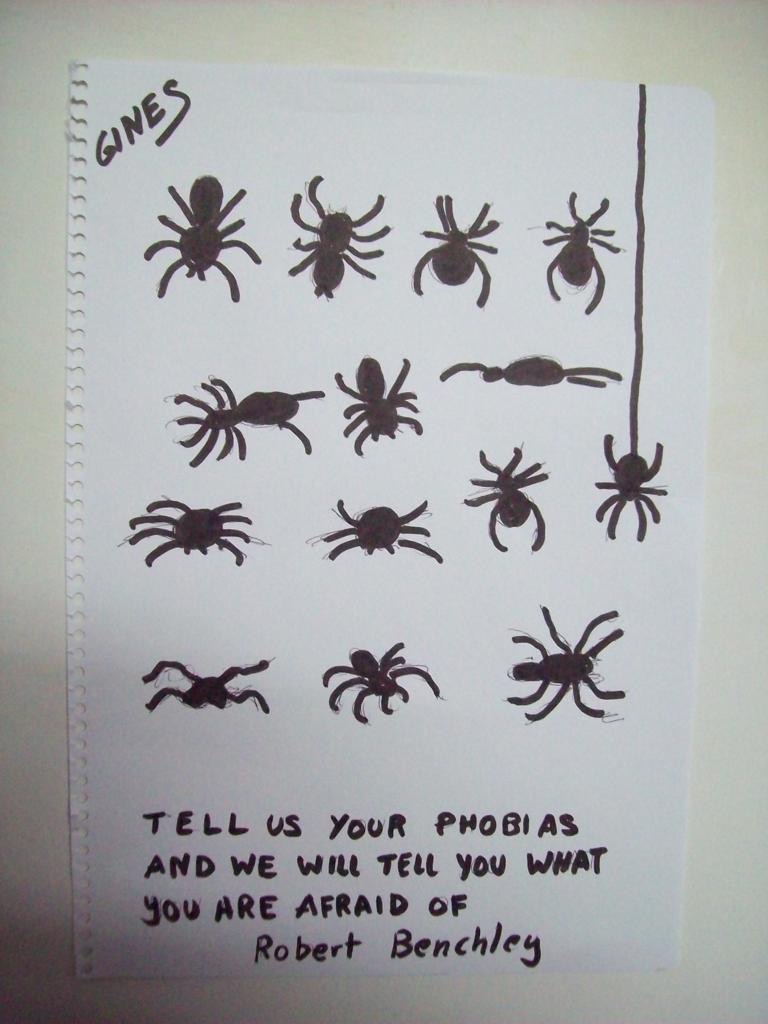 GINES
TELL US YOUR PHOBIAS
AND WE WILL TELL YOU WHAT
YOU ARE AFRAID OF
Robert Benchley